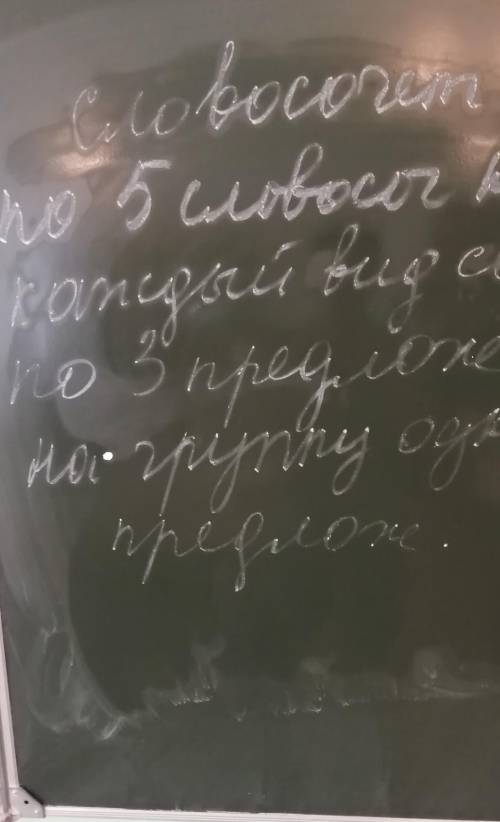 Словосочет
по 5 словосоч
каждый вид с
по 3 предложе
на группу од
предлож.